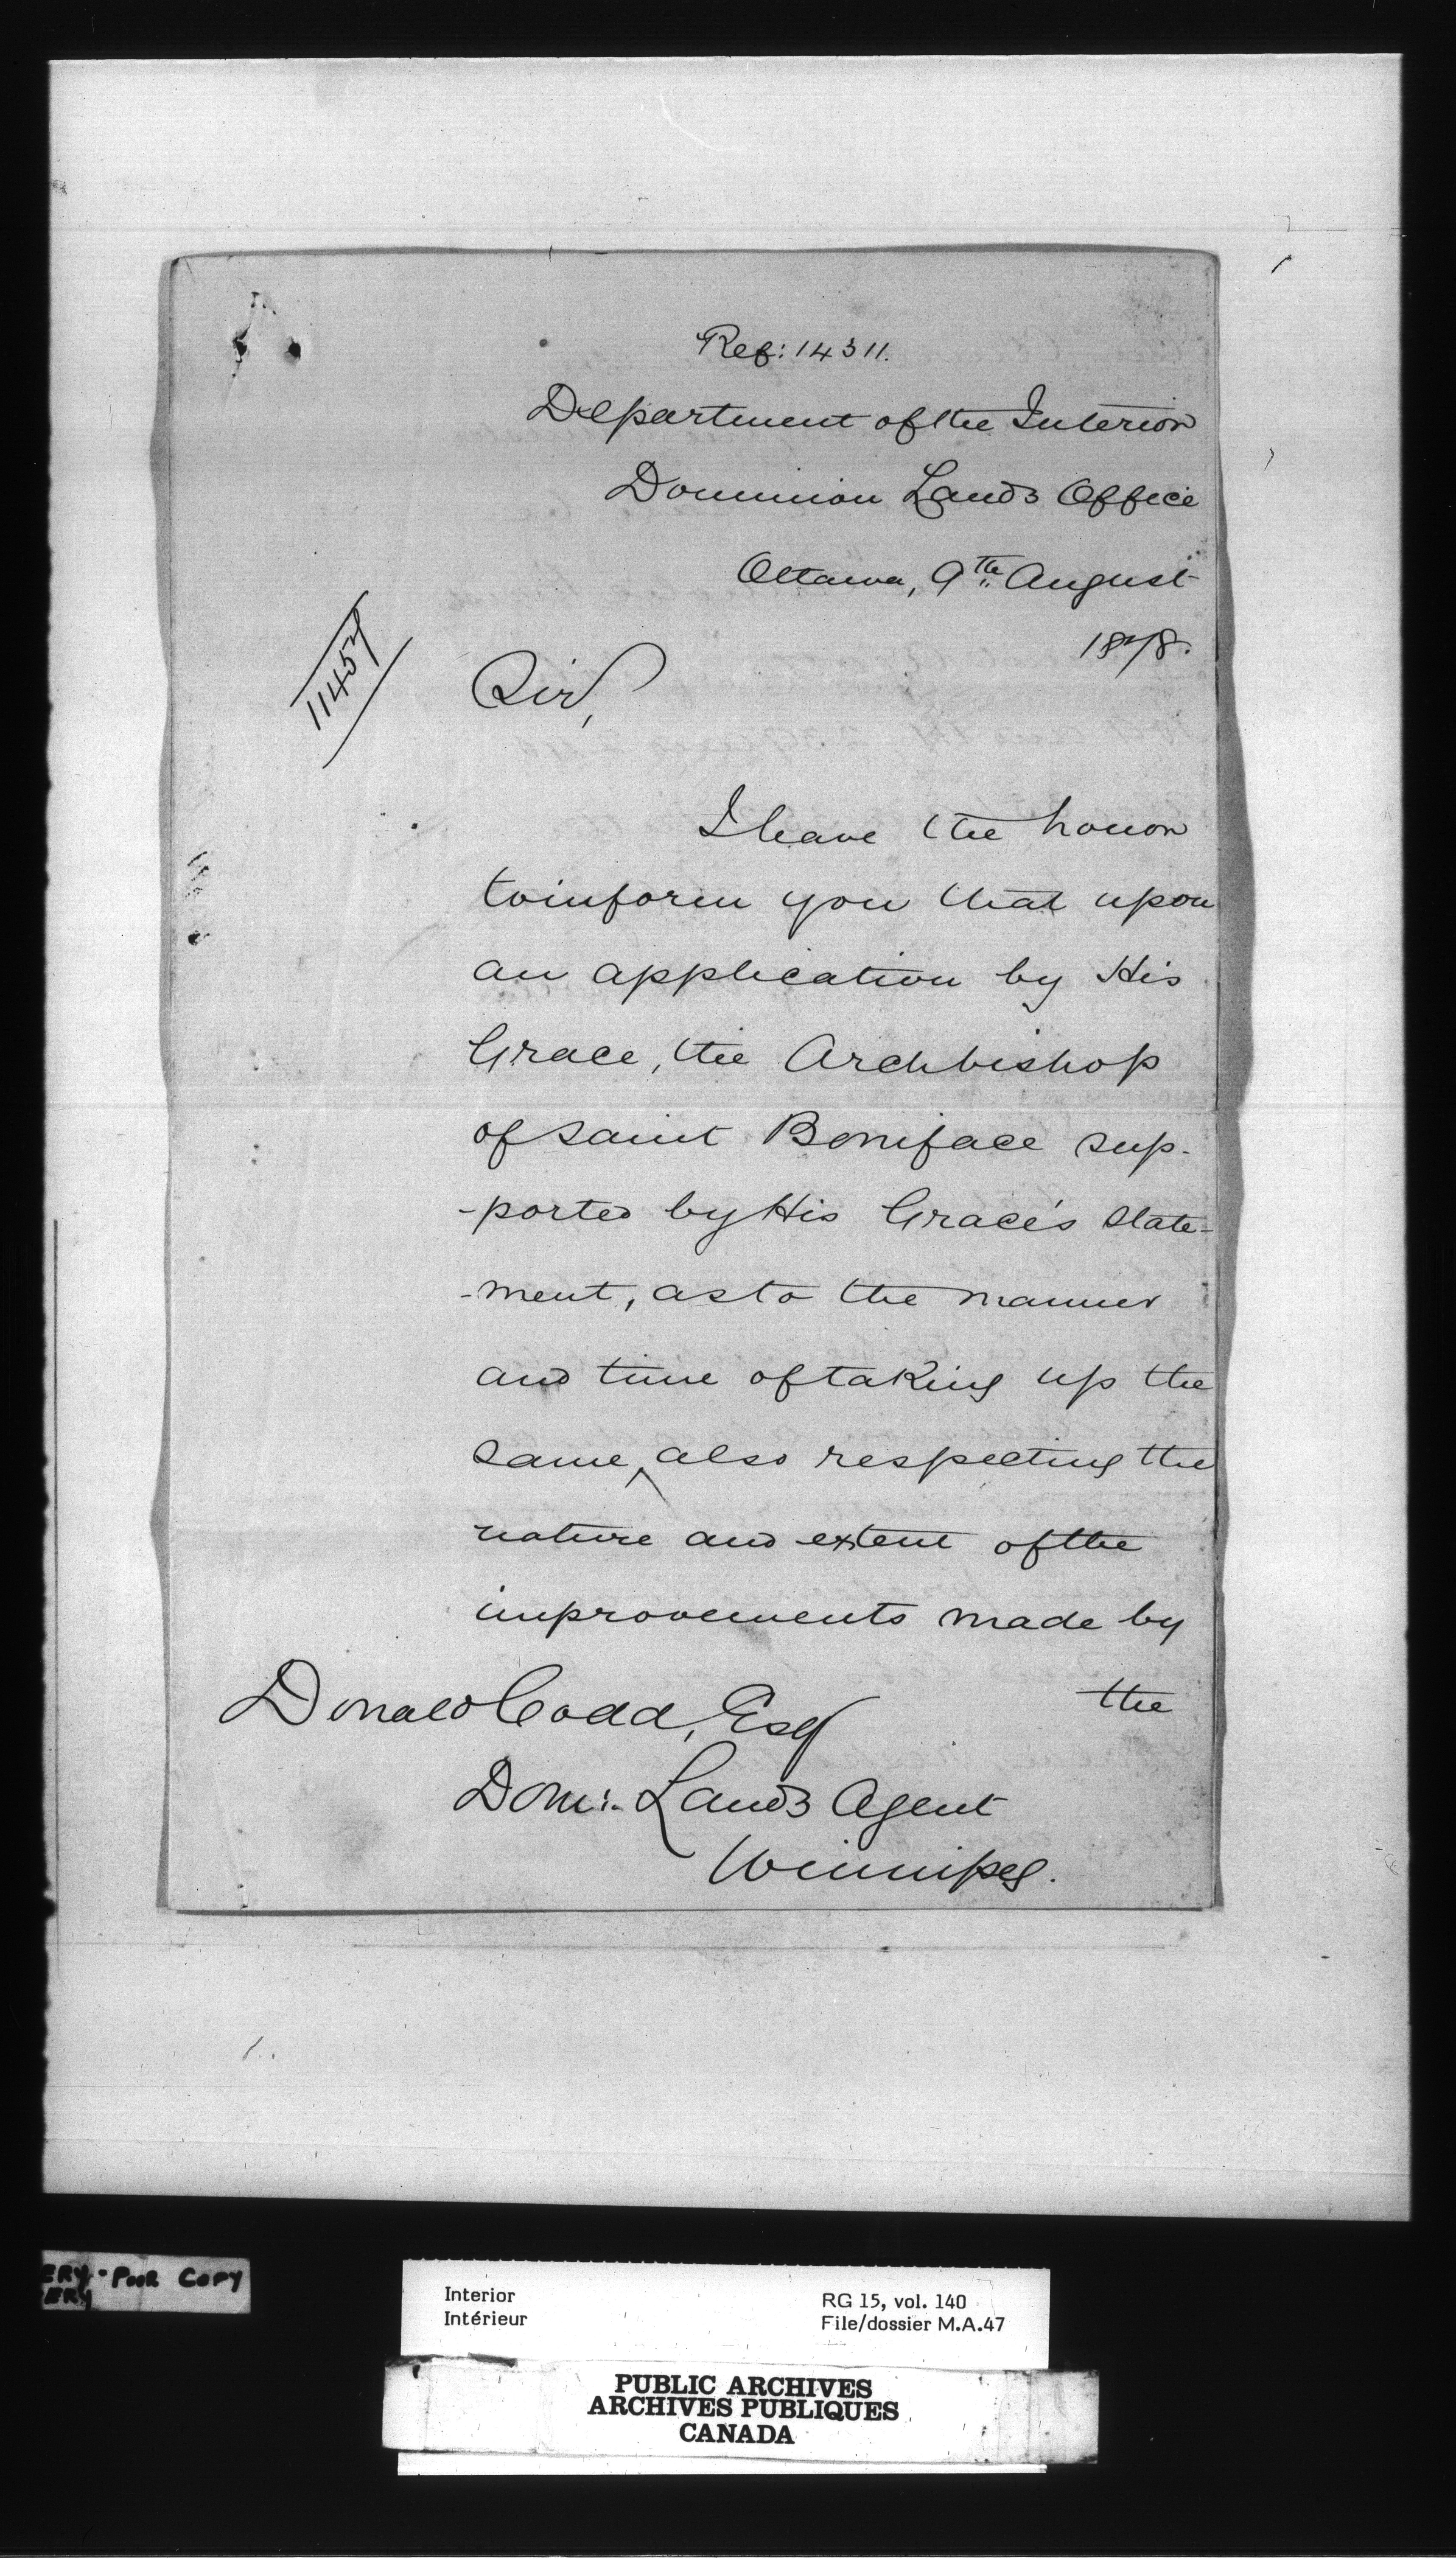 Ref: 14311.
Department of the Interior
Dominion Lands Office
Ottawa, 9th August
1878.
11457
Sir,
I have the honor
to inform you that upon
an application by His
Grace, the Archbishop
of Saint Boniface sup-
-ported by His Grace's state-
-ment, as to the manner
and time of taking up the
same, also respecting the
nature and extent of the
improvements made by
the
Donald Codd, Esq
Dom: Lands Agent
Winnipeg.
ERY - POOR COPY
ERY
Interior
Intérieur
RG 15, vol. 140
File/dossier M.A.47
PUBLIC ARCHIVES
ARCHIVES PUBLIQUES
CANADA